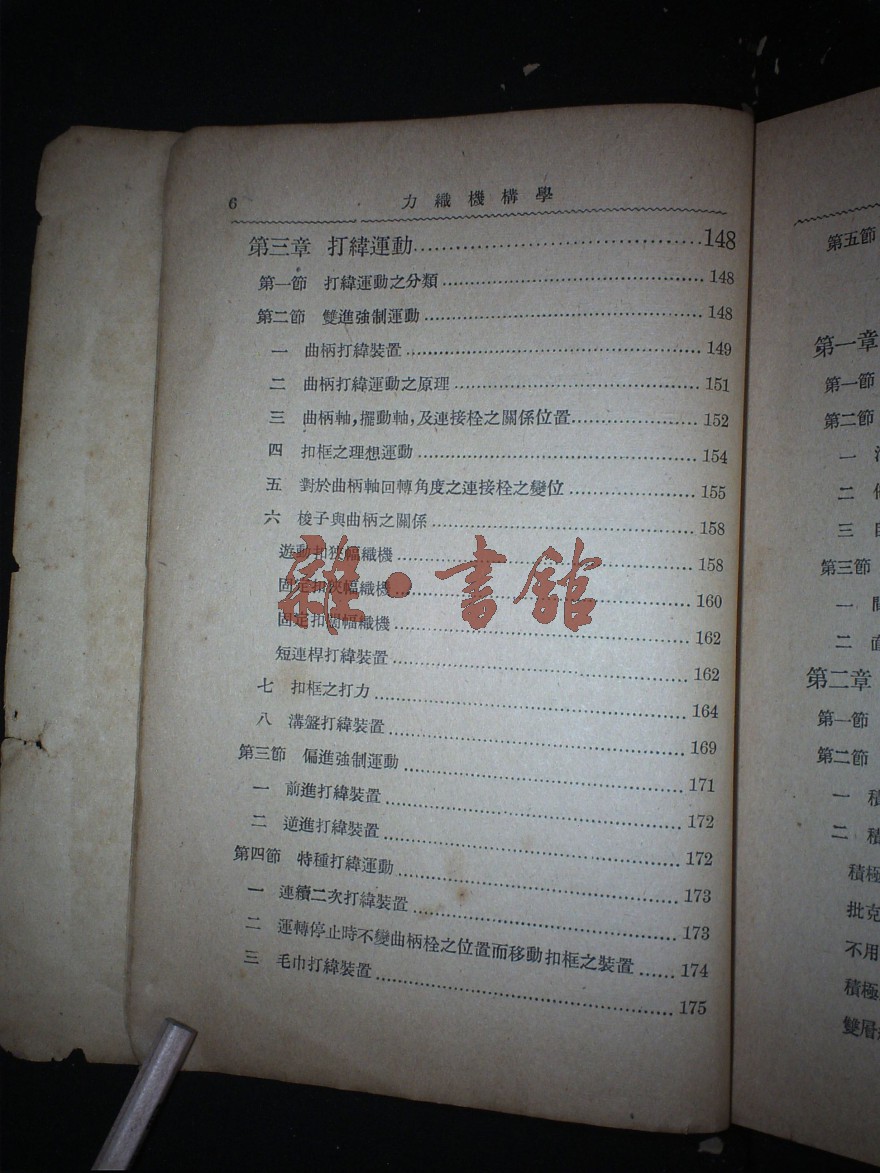 6 力織機構學
第三章 打緯運動……148
第一節 打緯運動之分類……148
第二節 雙進強制運動……148
一 曲柄打緯裝置……149
二 曲柄打緯運動之原理……151
三 曲柄軸,擺動軸,及連接栓之關係位置……152
四 扣框之理想運動……154
五 對於曲柄軸回轉角度之連接栓之變位……155
六 梭子與曲柄之關係……158
遊動扣狹幅織機……158
固定扣狹幅織機……160
固定扣闊幅織機……162
短連桿打緯裝置……162
七 扣框之打力……164
八 溝盤打緯裝置……169
第三節 偏進強制運動……171
一 前進打緯裝置……172
二 逆進打緯裝置……172
第四節 特種打緯運動……173
一 連續二次打緯裝置……173
二 運轉停止時不變曲柄栓之位置而移動扣框之裝置……174
三 毛巾打緯裝置……175
雜·書館
第五節
第一章
第一節
第二節
一
二
三
第三節
一
二
第二章
第一節
第二節
一 積
二 積
積極
批克
不用
積極
雙層